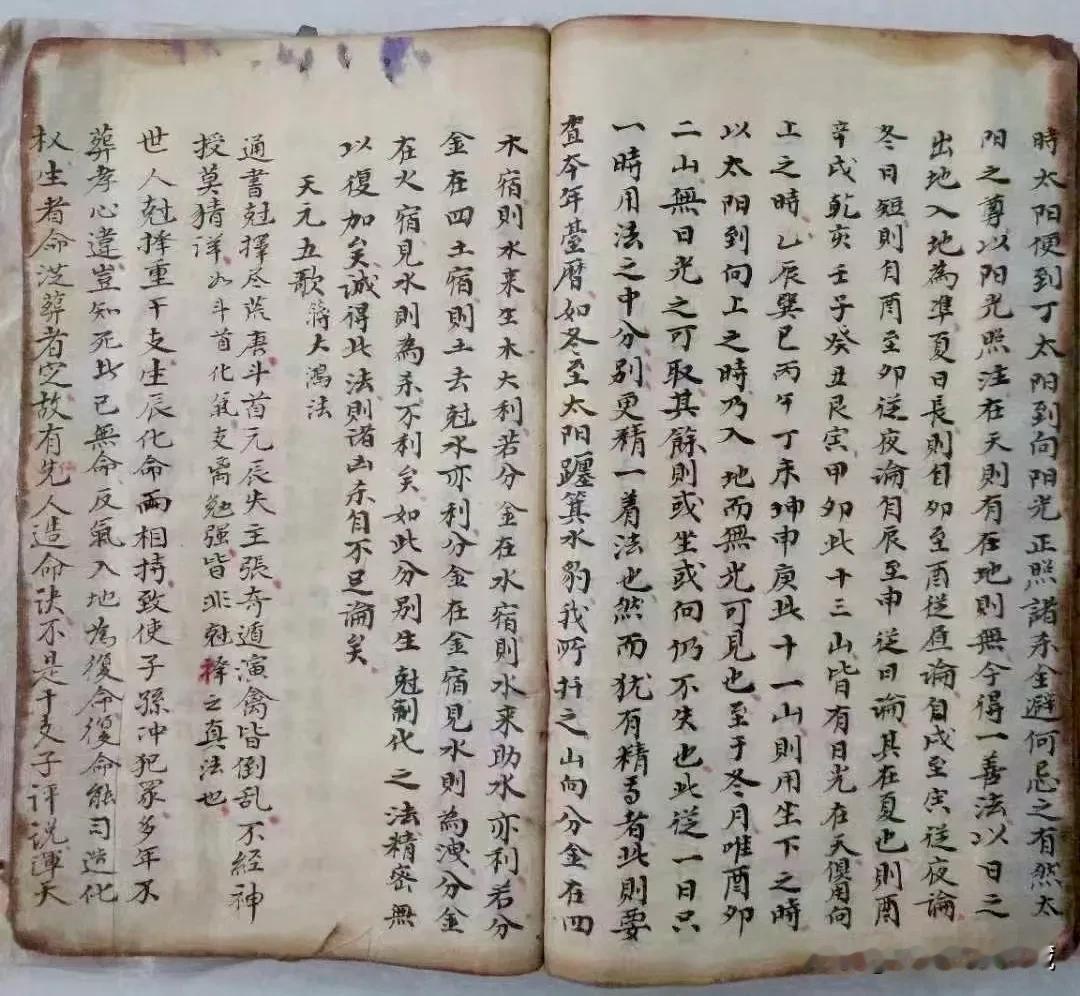 時太阳便到丁太阳到向阳光正照諸杀全避何忌之有然太
阳之尊以阳光照注在天則有在地則無今得一善法以日之
出地入地為準夏日長則自卯至酉從昼論自戌至寅從夜論
冬日短則自酉至卯從夜論自辰至申從日論其在夏也則酉
辛戌乾亥壬子癸丑艮寅甲卯此十三山皆有日光在天俱用向
上之時乙辰巽巳丙午丁未坤申庚此十一山則用坐下之時
以太阳到向上之時乃入地而無光可見也至于冬月唯酉卯
二山無日光之可取其餘則或坐或向仍不失也此從一日只
一時用法之中分別更精一着法也然而犹有精焉者此則要
查本年臺曆如冬至太阳躔箕水豹我所扦之山向分金在四
木宿則水來生木大利若分金在水宿則水來助水亦利若分
金在四土宿則土去尅水亦利分金在金宿見水則為洩分金
在火宿見水則為杀不利矣如此分別生尅制化之法精密無
以復加矣誠得此法則诸凶杀自不足論矣
天元五歌蔣大鴻法
通書尅擇尽荒唐斗首元辰失主張奇遁演禽皆倒乱不經神
授莫猜详如斗首化氣支离勉强皆非尅擇之真法也
世人尅择重干支生辰化命两相持致使子孫冲犯眾多年不
葬孝心違豈知死此已無命反氣入地為復命復命能司造化
权生者命从葬者定故有先人造命诀不是干支子评说渾天